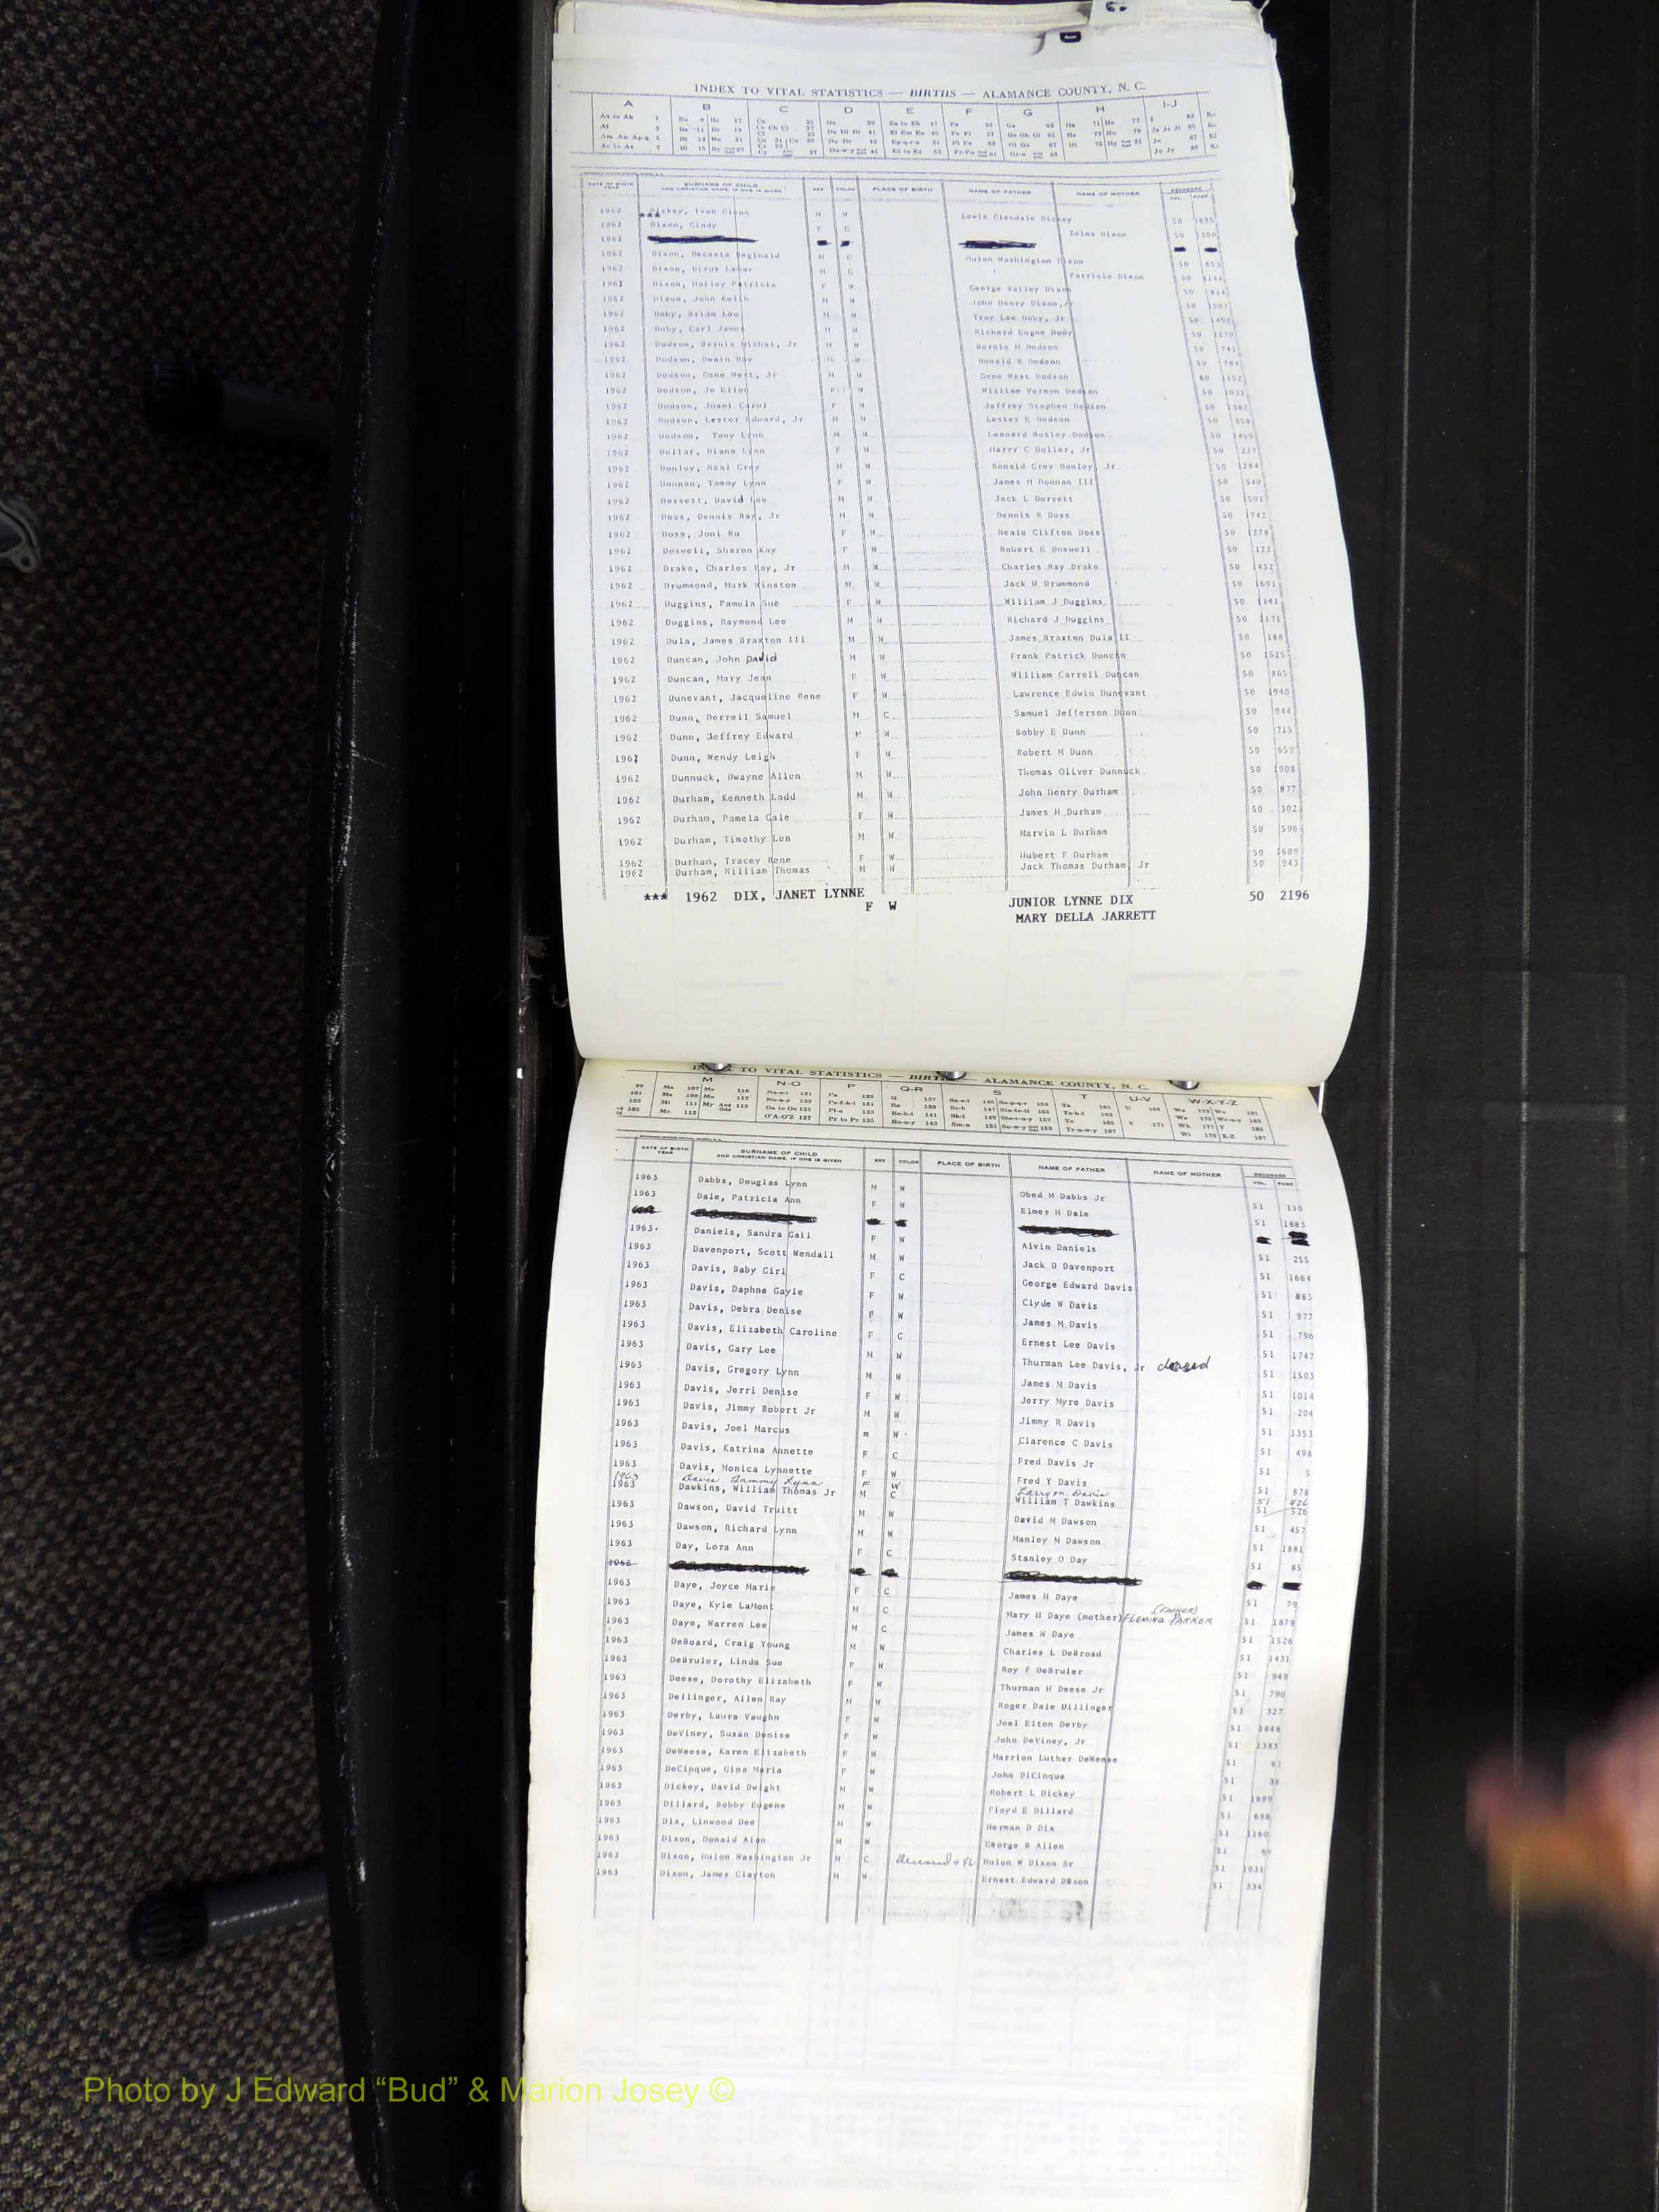 INDEX TO VITAL STATISTICS — BIRTHS — ALAMANCE COUNTY, N. C.
A B C D E F G H I-J
DATE OF BIRTH YEAR SURNAME OF CHILD AND CHRISTIAN NAME, IF ONE IS GIVEN SEX COLOR PLACE OF BIRTH NAME OF FATHER NAME OF MOTHER RECORDED VOL. PAGE
1962 Dickey, Ivan Glenn M W Lewis Glendale Dickey 50 1885
1962 *** Dixon, Cindy F C Zelma Dixon 50 1390
1962
1962 Dixon, Decasta Reginald M C Hulon Washington Dixon 50 853
1962 Dixon, Dirus Lamar M C Patricia Dixon 50 1144
1962 Dixon, Hailey Patricia F W George Bailey Dixon 50
1962 Dixon, John Keith M W John Henry Dixon, Jr 50 1507
1962 Doby, Brian Lee M W Troy Lee Doby, Jr 50 1492
1962 Doby, Carl James M W Richard Eugne Doby 50 1279
1962 Dodson, Bernis Michal, Jr M W Bernis M Dodson 50 741
1962 Dodson, Dwain Ray M W Donald R Dodson 50 784
1962 Dodson, Gene West, Jr M W Gene West Dodson 50 1152
1962 Dodson, Jo Ellen F W William Vernon Dodson 50 1032
1962 Dodson, Joani Carol F W Jeffrey Stephen Dodson 50 1382
1962 Dodson, Lester Edward, Jr M W Lester E Dodson 50 558
1962 Dodson, Tony Lynn M W Leonard Wesley Dodson 50 1459
1962 Dollar, Diann Lynn F W Harry C Dollar, Jr 50 227
1962 Donley, Neal Grey M W Ronald Grey Donley, Jr 50 1284
1962 Donnan, Tammy Lynn F W James H Donnan III 50 540
1962 Dorsett, David Lee M W Jack L Dorsett 50 1591
1962 Doss, Dennis Ray, Jr M W Dennis R Doss 50 1742
1962 Doss, Joni Ru F W Neale Clifton Doss 50 1278
1962 Doswell, Sharon Kay F W Robert E Doswell 50 122
1962 Drake, Charles Ray, Jr M W Charles Ray Drake 50 1432
1962 Drummond, Mark Winston M W Jack W Drummond 50 1601
1962 Duggins, Pamela Sue F W William J Duggins 50 1141
1962 Duggins, Raymond Lee M W Richard J Duggins 50 2171
1962 Dula, James Braxton III M W James Braxton Dula II 50 188
1962 Duncan, John David M W Frank Patrick Duncan 50 1525
1962 Duncan, Mary Jean F W William Carroll Duncan 50 865
1962 Dunevant, Jacqueline Rene F W Lawrence Edwin Dunevant 50 1940
1962 Dunn, Derrell Samuel M C Samuel Jefferson Dunn 50 944
1962 Dunn, Jeffrey Edward M W Bobby E Dunn 50 715
1962 Dunn, Wendy Leigh F W Robert M Dunn 50 659
1962 Dunnuck, Dwayne Allen M W Thomas Oliver Dunnuck 50 1908
1962 Durham, Kenneth Ladd M W John Henry Durham 50 877
1962 Durham, Pamela Gale F W James H Durham 50 302
1962 Durham, Timothy Len M W Marvin L Durham 50 596
1962 Durham, Tracey Rene F W Hubert F Durham 50 1609
1962 Durham, William Thomas M W Jack Thomas Durham, Jr 50 943
*** 1962 DIX, JANET LYNNE F W JUNIOR LYNNE DIX 50 2196
MARY DELLA JARRETT
INDEX TO VITAL STATISTICS — BIRTHS — ALAMANCE COUNTY, N. C.
M N-O P Q-R S T U-V W-X-Y-Z
DATE OF BIRTH YEAR SURNAME OF CHILD AND CHRISTIAN NAME, IF ONE IS GIVEN SEX COLOR PLACE OF BIRTH NAME OF FATHER NAME OF MOTHER RECORDED VOL. PAGE
1963 Dabbs, Douglas Lynn M W Obed M Dabbs Jr 51 110
1963 Dale, Patricia Ann F W Elmer H Dale 51 1883
1963 Daniels, Sandra Gail F W Alvin Daniels 51 255
1963 Davenport, Scott Wendall M W Jack D Davenport 51 1664
1963 Davis, Baby Girl F C George Edward Davis 51 883
1963 Davis, Daphne Gayle F W Clyde W Davis 51 977
1963 Davis, Debra Denise F W James M Davis 51 796
1963 Davis, Elizabeth Caroline F C Ernest Lee Davis 51 1747
1963 Davis, Gary Lee M W Thurman Lee Davis, Jr 51 1503
1963 Davis, Gregory Lynn M W James M Davis 51 1014
1963 Davis, Jerri Denise F W Jerry Myre Davis 51 204
1963 Davis, Jimmy Robert Jr M W Jimmy R Davis 51 1353
1963 Davis, Joel Marcus m W Clarence C Davis 51 498
1963 Davis, Katrina Annette F C Fred Davis Jr 51 5
1963 Davis, Monica Lynnette F W Fred Y Davis 51 878
1963 Davis, Tammy Lynn F W Larry m. Davis 51 426
1963 Dawkins, William Thomas Jr M C William T Dawkins 51 526
1963 Dawson, David Truitt M W David M Dawson 51 457
1963 Dawson, Richard Lynn M W Manley M Dawson 51 1881
1963 Day, Lora Ann F C Stanley O Day 51 85
1962
1963 Daye, Joyce Marie F C James H Daye 51 79
1963 Daye, Kyle LaMont M C Mary H Daye (mother) FLEMING PARKER (FATHER) 51 1879
1963 Daye, Warren Lee M C James N Daye 51 1526
1963 DeBoard, Craig Young M W Charles L DeBroad 51 1431
1963 DeBruler, Linda Sue F W Roy F DeBruler 51 949
1963 Deese, Dorothy Elizabeth F W Thurman H Deese Jr 51 790
1963 Dellinger, Allen Ray M W Roger Dale Dillinger 51 327
1963 Derby, Laura Vaughn F W Joel Elton Derby 51 1848
1963 DeViney, Susan Denise F W John DeViney, Jr 51 1383
1963 DeWeese, Karen Elizabeth F W Marrion Luther DeWeese 51 67
1963 DeCinque, Gina Maria F W John DiCinque 51 38
1963 Dickey, David Dwight M W Robert L Dickey 51 1699
1963 Dillard, Bobby Eugene M W Floyd E Dillard 51 698
1963 Dix, Linwood Dee M W Herman D Dix 51 1160
1963 Dixon, Donald Alan M W George B Allen 51
1963 Dixon, Hulon Washington Jr M C Deceased Hulon W Dixon Sr 51 1031
1963 Dixon, James Clayton M W Ernest Edward Dixon 51 334
Photo by J Edward “Bud” & Marion Josey ©